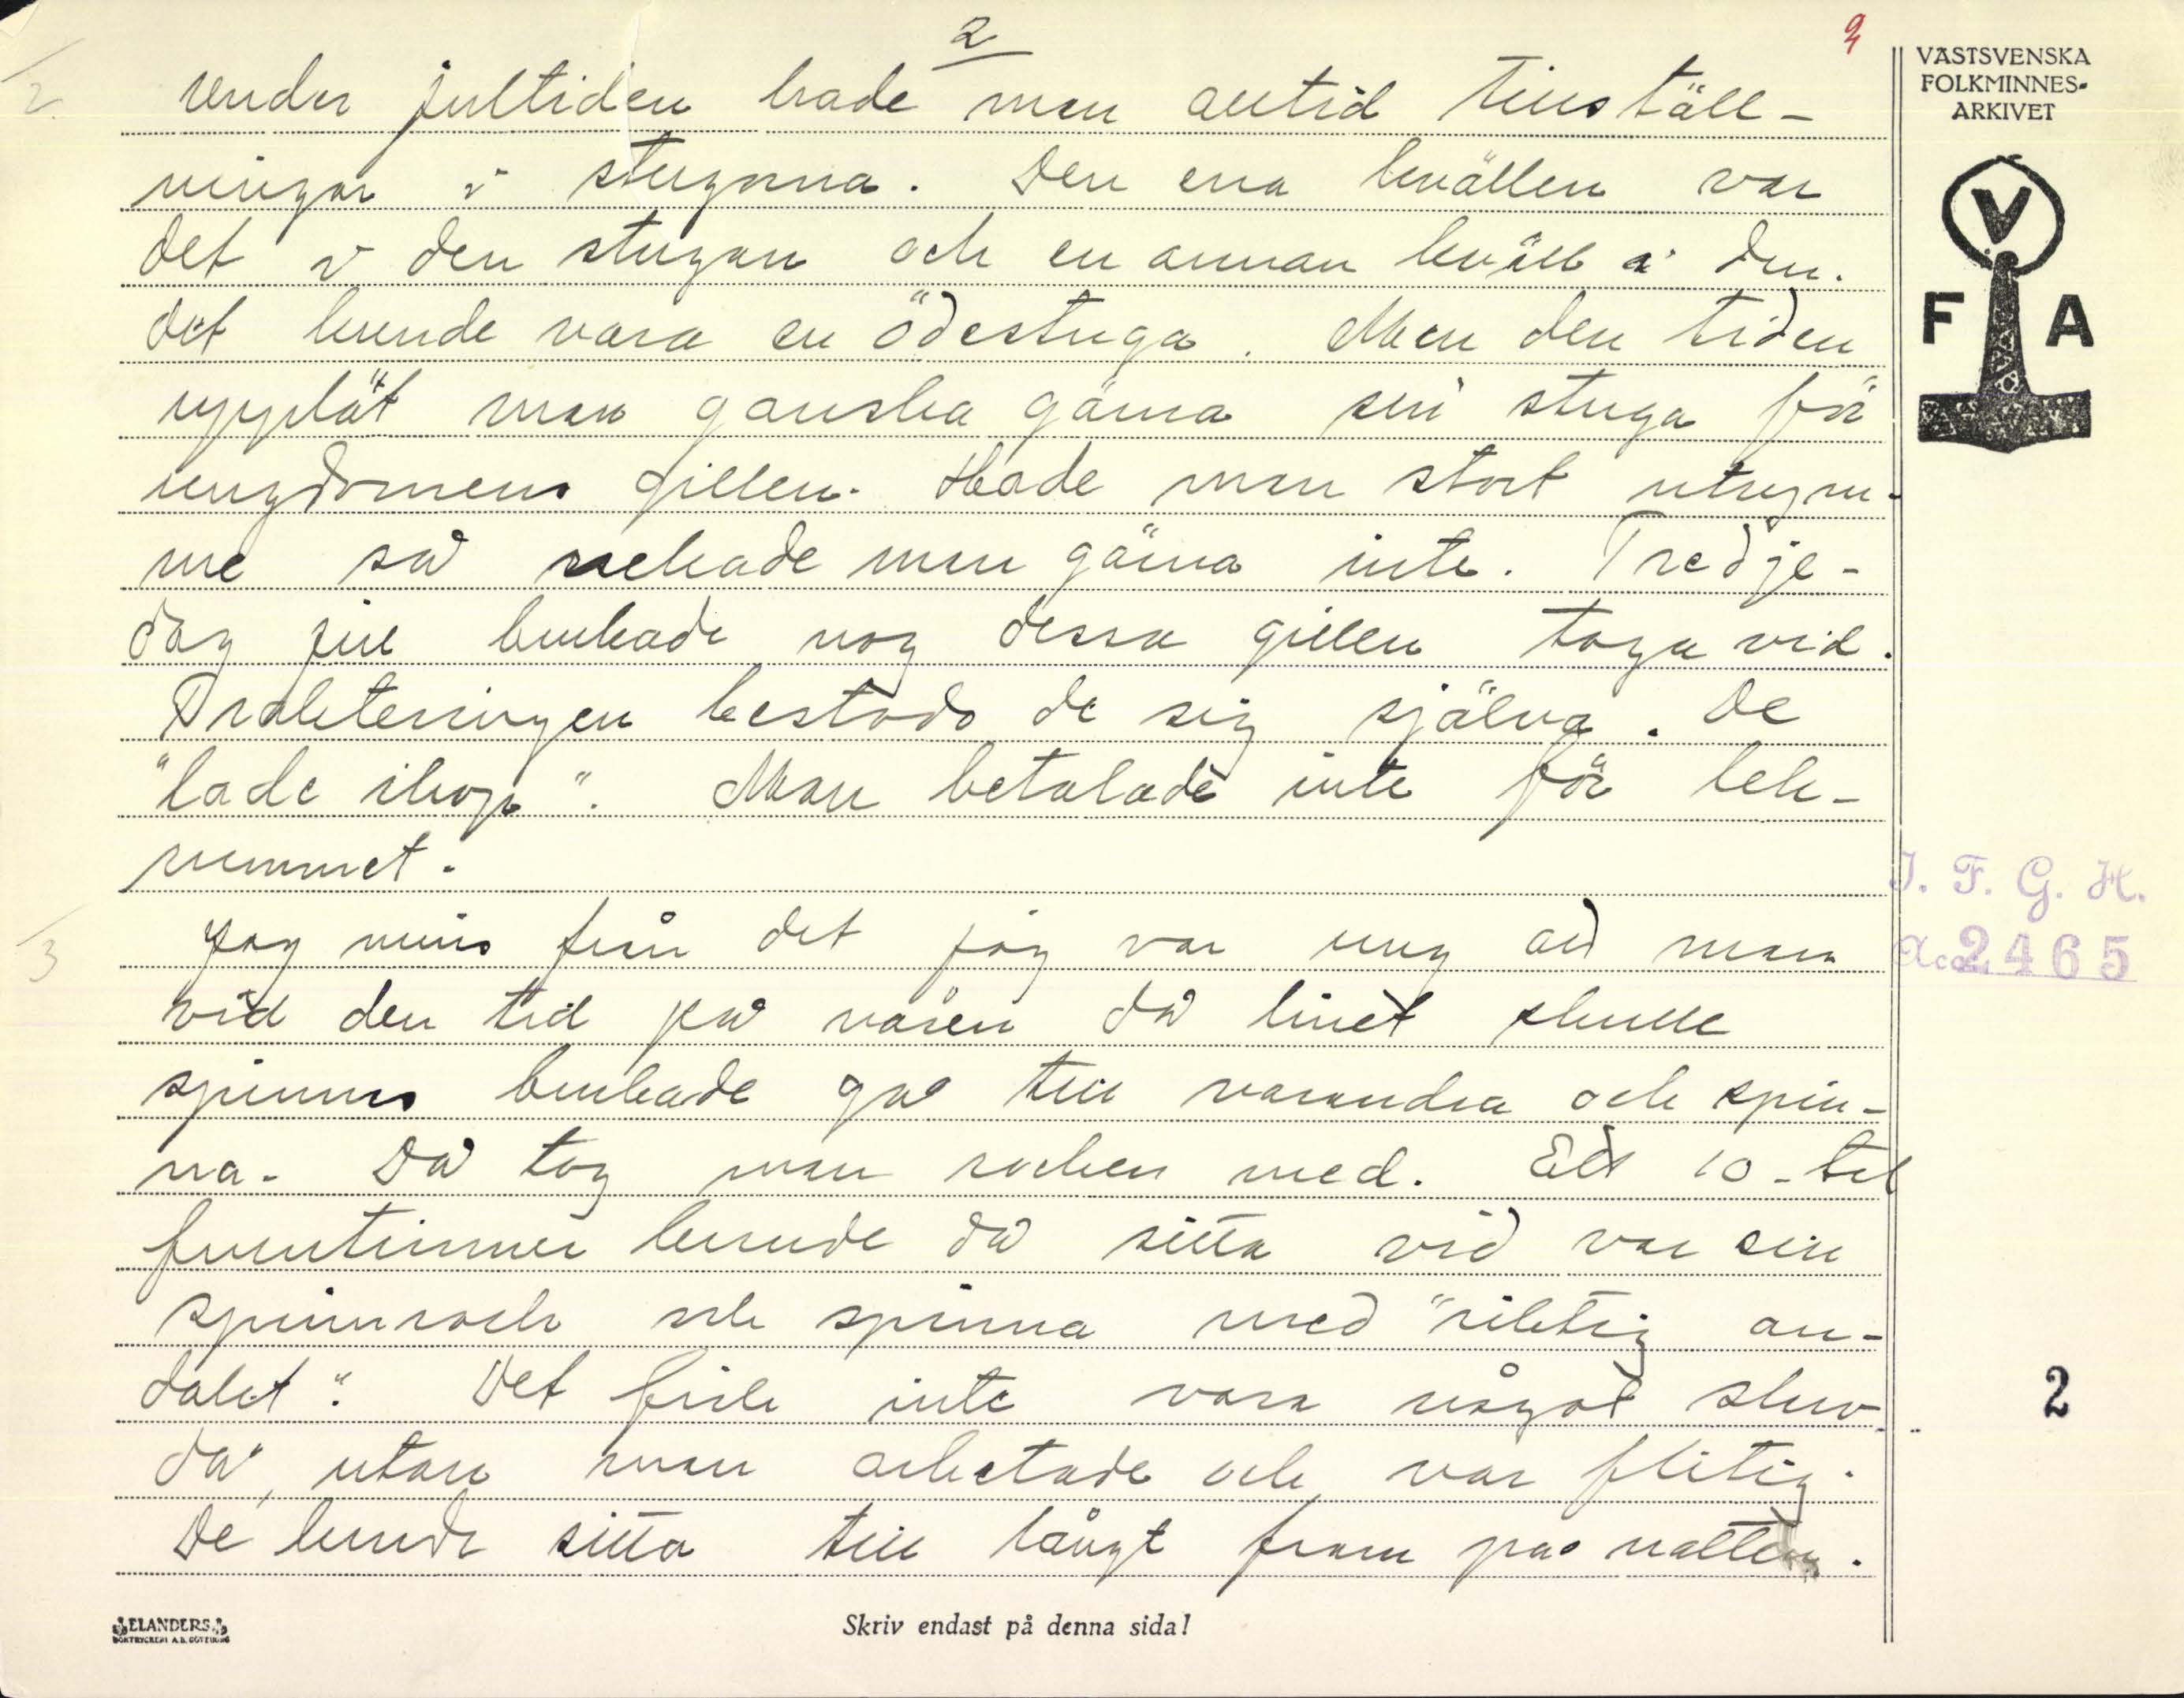 2
9
VÄSTSVENSKA
FOLKMINNES-
ARKIVET
V
F A
2.
Under jultiden hade man alltid tillställ-
ningar i stugorna. Den ena kvällen var
det i den stugan och en annan kväll i den.
Det kunde vara en ödestuga. Men den tiden
upplät man ganska gärna sin stuga för
ungdomens gillen. Hade man stort utrym-
me så nekade man gärna inte. Tredje-
dag jul brukade nog dessa gillen taga vid.
Trakteringen bestodo de sig själva. De
"lade ihop". Man betalade inte för lek-
rummet.
3
Jag minns från det jag var ung att man
vid den tid på våren då linet skulle
spinnas brukade gå till varandra och spin-
na. Då tog man rocken med. Ett 10-tal
fruntimmer kunde då sitta vid var sin
spinnrock och spinna med "riktig an-
dakt". Det fick inte vara något slarv
då, utan man arbetade och var flitig.
De kunde sitta till långt fram på natten.
I. F. G. H.
Acc. 2465
2
ELANDERS
BOKTRYCKERI A.B. GÖTEBORG
Skriv endast på denna sida!